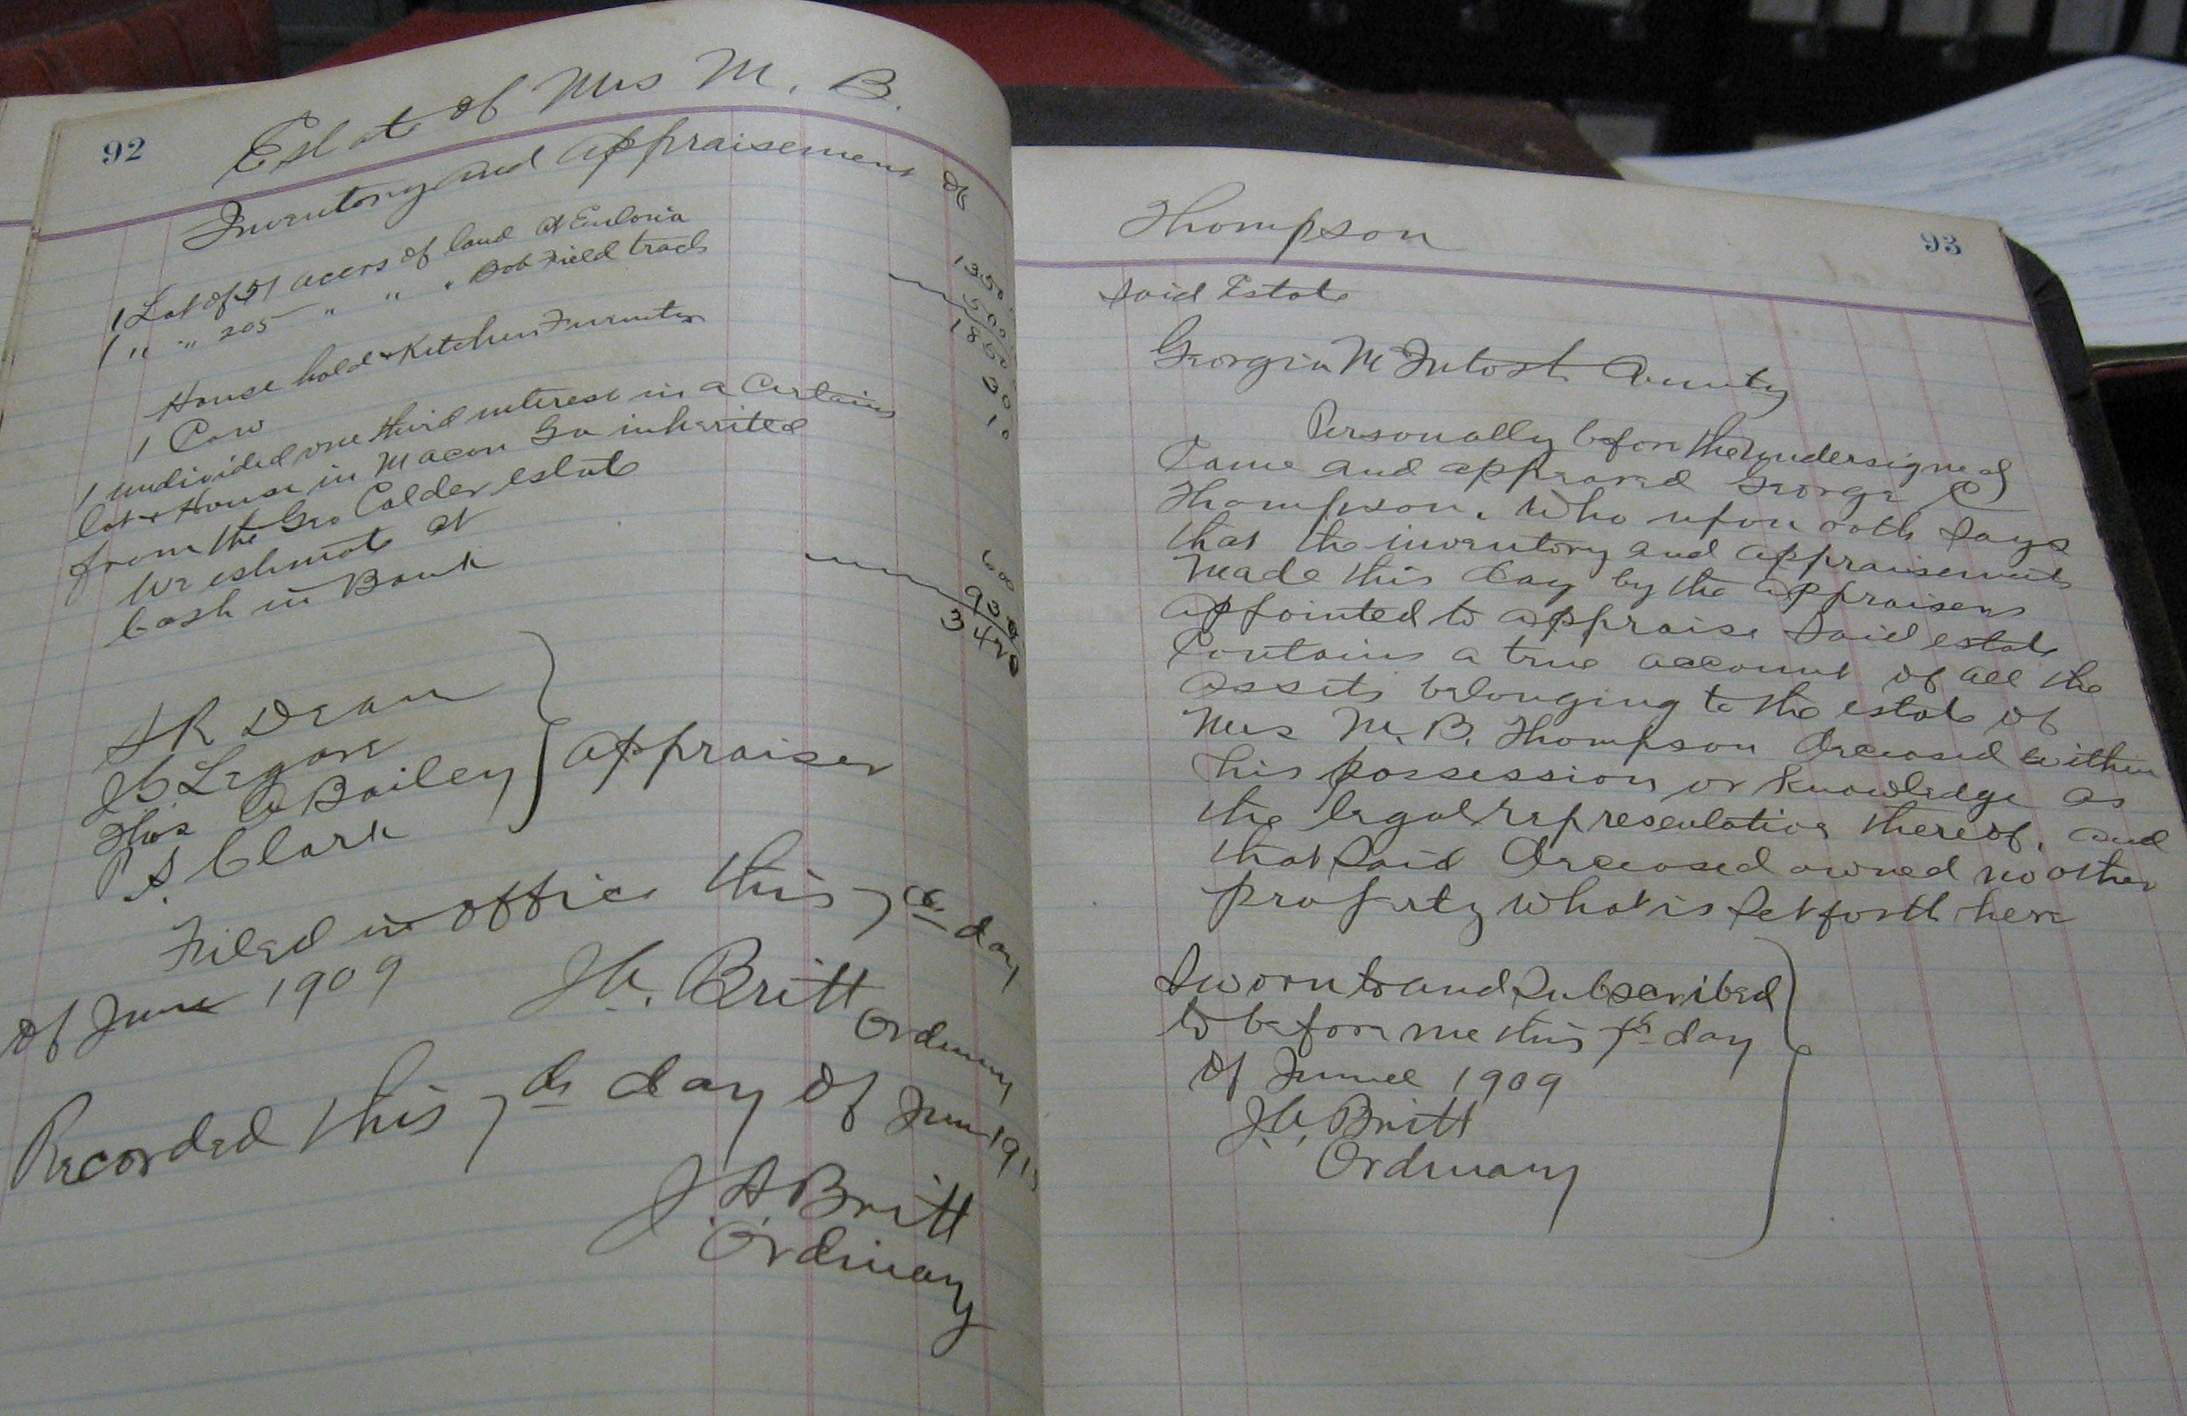 92
Estate of Mrs M. B.
Inventory and appraisement of
1 Lot of 51 acers of land at Eulonia 1350
1 " " 205 " " " Bob Field track 500
1850
House hold & Kitchen Furnitur 30
1 Cow 10
1 undivided one third interest in a Certain
lot & House in Macon Ga inherited
from the Geo Calder estate
We estimate at 600
Cash in Bank 930
3420
R Dean
Legare
Thos Bailey
P. S. Clark
appraiser
Filed in office this 7th day
of June 1909
J. A. Britt
Ordinary
Recorded this 7th day of June
J. A Britt
Ordinary
Thompson
93
Said Estate
Georgia McIntosh County
Personally before the undersigned
Came and appeared George C
Thompson. Who upon oath Says
that the inventory and appraisement
made this day by the appraisers
appointed to appraise Said estate
Contains a true account of all the
assets belonging to the estate of
Mrs M. B. Thompson Deceased within
his possession or knowledge as
the legal representative thereof, and
that Said Deceased owned no other
property what is Set forth here
Sworn to and Subscribed
to before me this 7th day
of June 1909
J. A. Britt
Ordinary